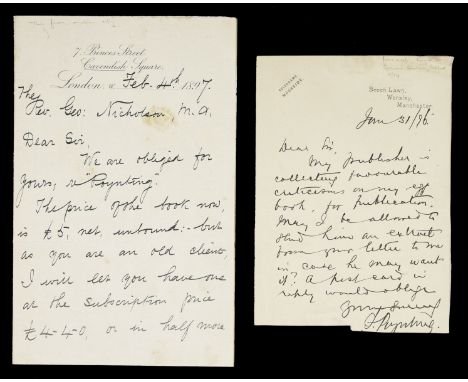 7, Princes Street,
Cavendish Square,
London, W. Feb. 4th 1897.
The Rev. Geo: Nicholson M.A.
Dear Sir,
We are obliged for
yours, re "Poynting".
The price of the book now,
is £5. net, unbound:- but
as you are an old client,
I will let you have one
at the subscription price
£4-4-0, or in half moro
Beech Lawn,
Worsley,
Manchester
Jan 31/96
Dear Sir,
My publisher is
collecting favourable
criticisms on my egg
book, for publication.
May I be allowed to
send him an extract
from your letter to me
in case he may want
it? A post card in
reply would oblige
Yours sincerely
F. Poynting.